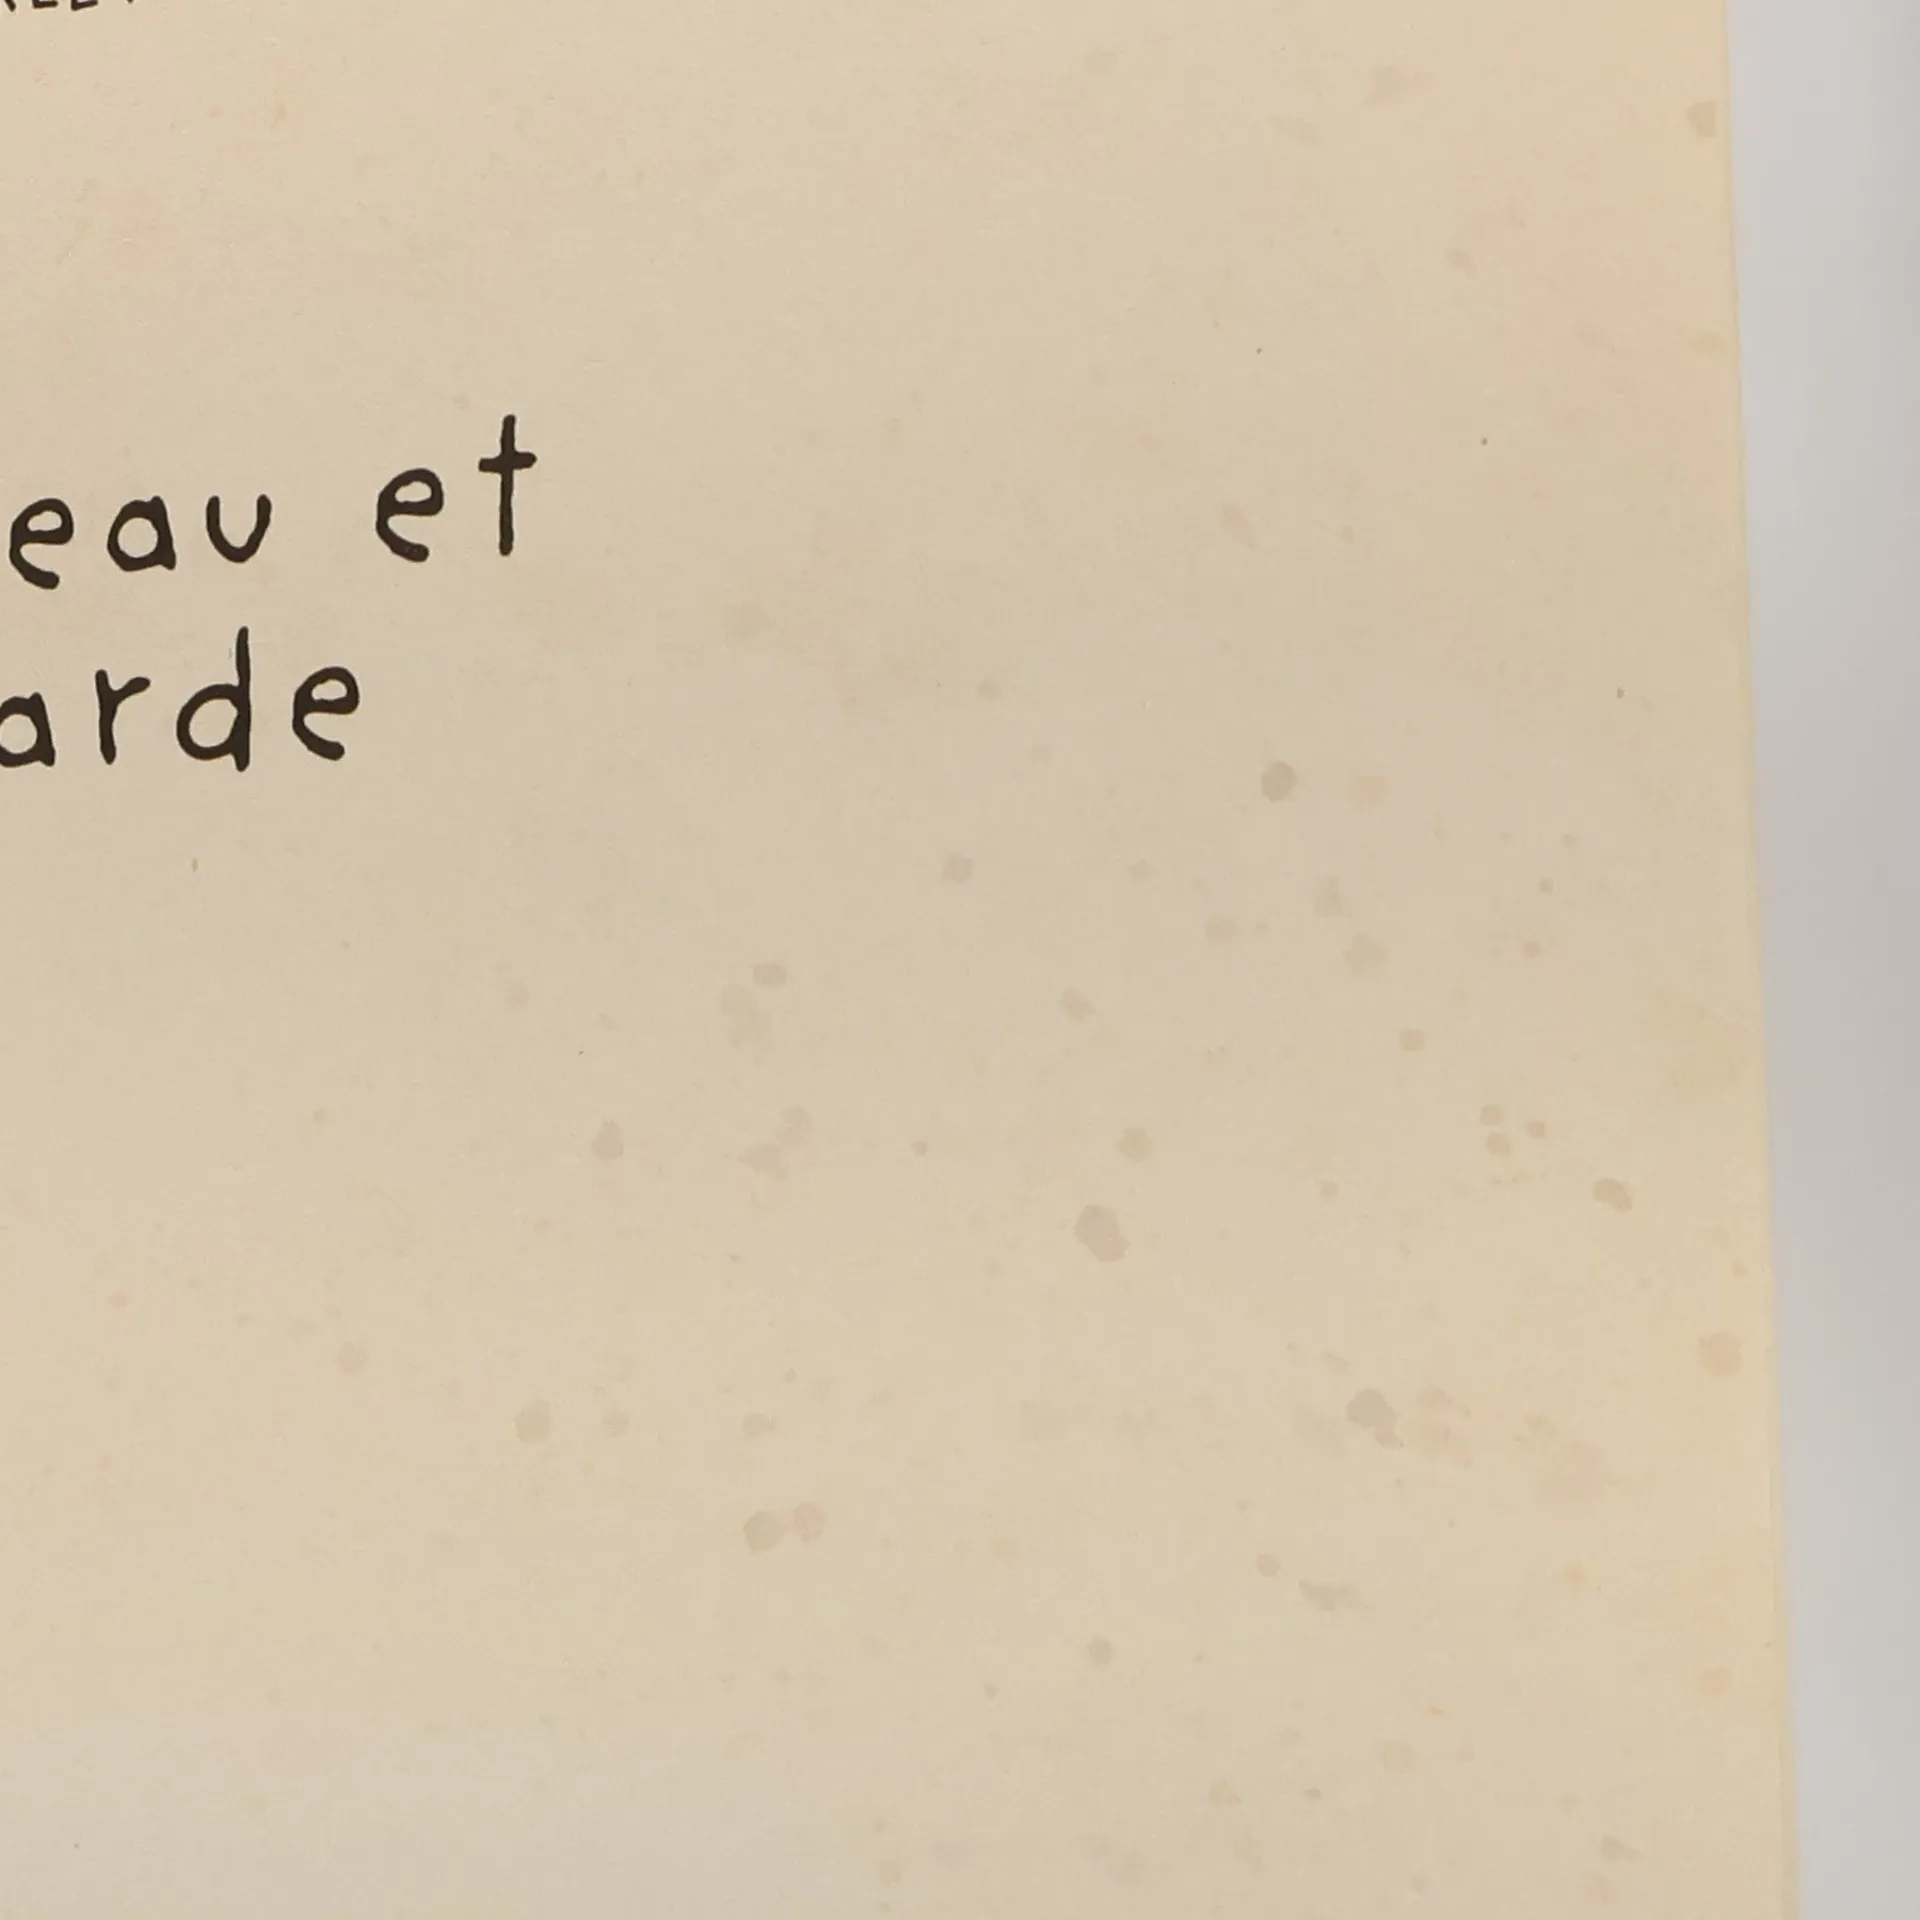 eau et
arde